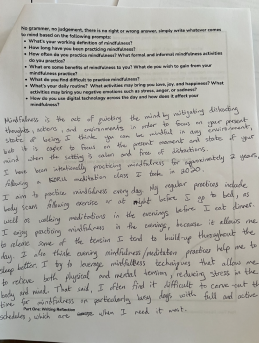 No grammar, no judgement, there is no right or wrong answer, simply write whatever comes
to mind based on the following prompts:
• What's your working definition of mindfulness?
• How long have you been practicing mindfulness?
• How often do you practice mindfulness? What formal and informal mindfulness activities
do you practice?
• What are some benefits of mindfulness to you? What do you wish to gain from your
mindfulness practice?
• What do you find difficult to practice mindfulness?
• What's your daily routine? What activities may bring you love, joy, and happiness? What
activities may bring you negative emotions such as stress, anger, or sadness?
• How do you use digital technology across the day and how does it affect your
mindfulness?
Mindfulness is the act of quieting the mind by mitigating distracting
thoughts, actions, and environments in order to focus on your present
state of being. I think you can be mindful in any environment,
but it is easier to focus on the present moment and state of your
mind when the setting is calm and free of distractions.
I have been intentionally practicing mindfulness for approximately 2 years,
following a mindfulness class I took in 2020.
I aim to practice mindfulness every day. My regular practices include
body scan following exercise or at night before I go to bed, as
well as walking meditations in the evenings before I eat dinner.
I enjoy practicing mindfulness in the evening, because it allows me
to release some of the tension I tend to build-up throughout the
day. I also think evening mindfulness/meditation practices help me to
sleep better. I try to leverage mindfulness techniques that allow me
to relieve both physical and mental tension, reducing stress in the
body and mind. That said, I often find it difficult to carve-out the
time for mindfulness on particularly busy days with full and active
Part One: Writing Reflection
schedules, which are when I need it most.